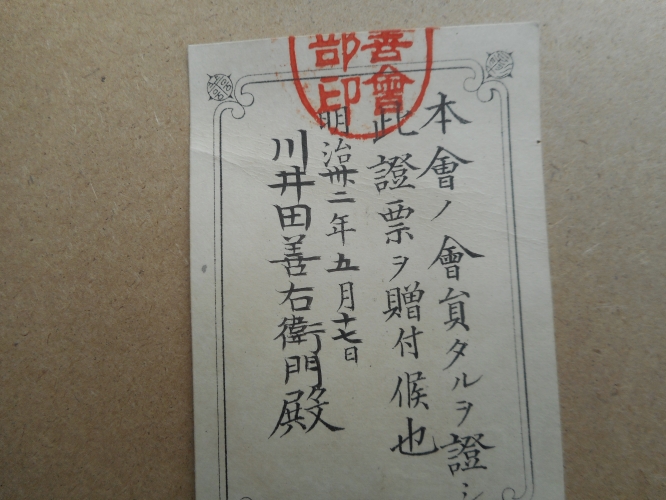 本會ノ會員タルヲ證シ
此證票ヲ贈付候也
明治卅二年五月十七日
川井田善右衛門殿
善會
部印